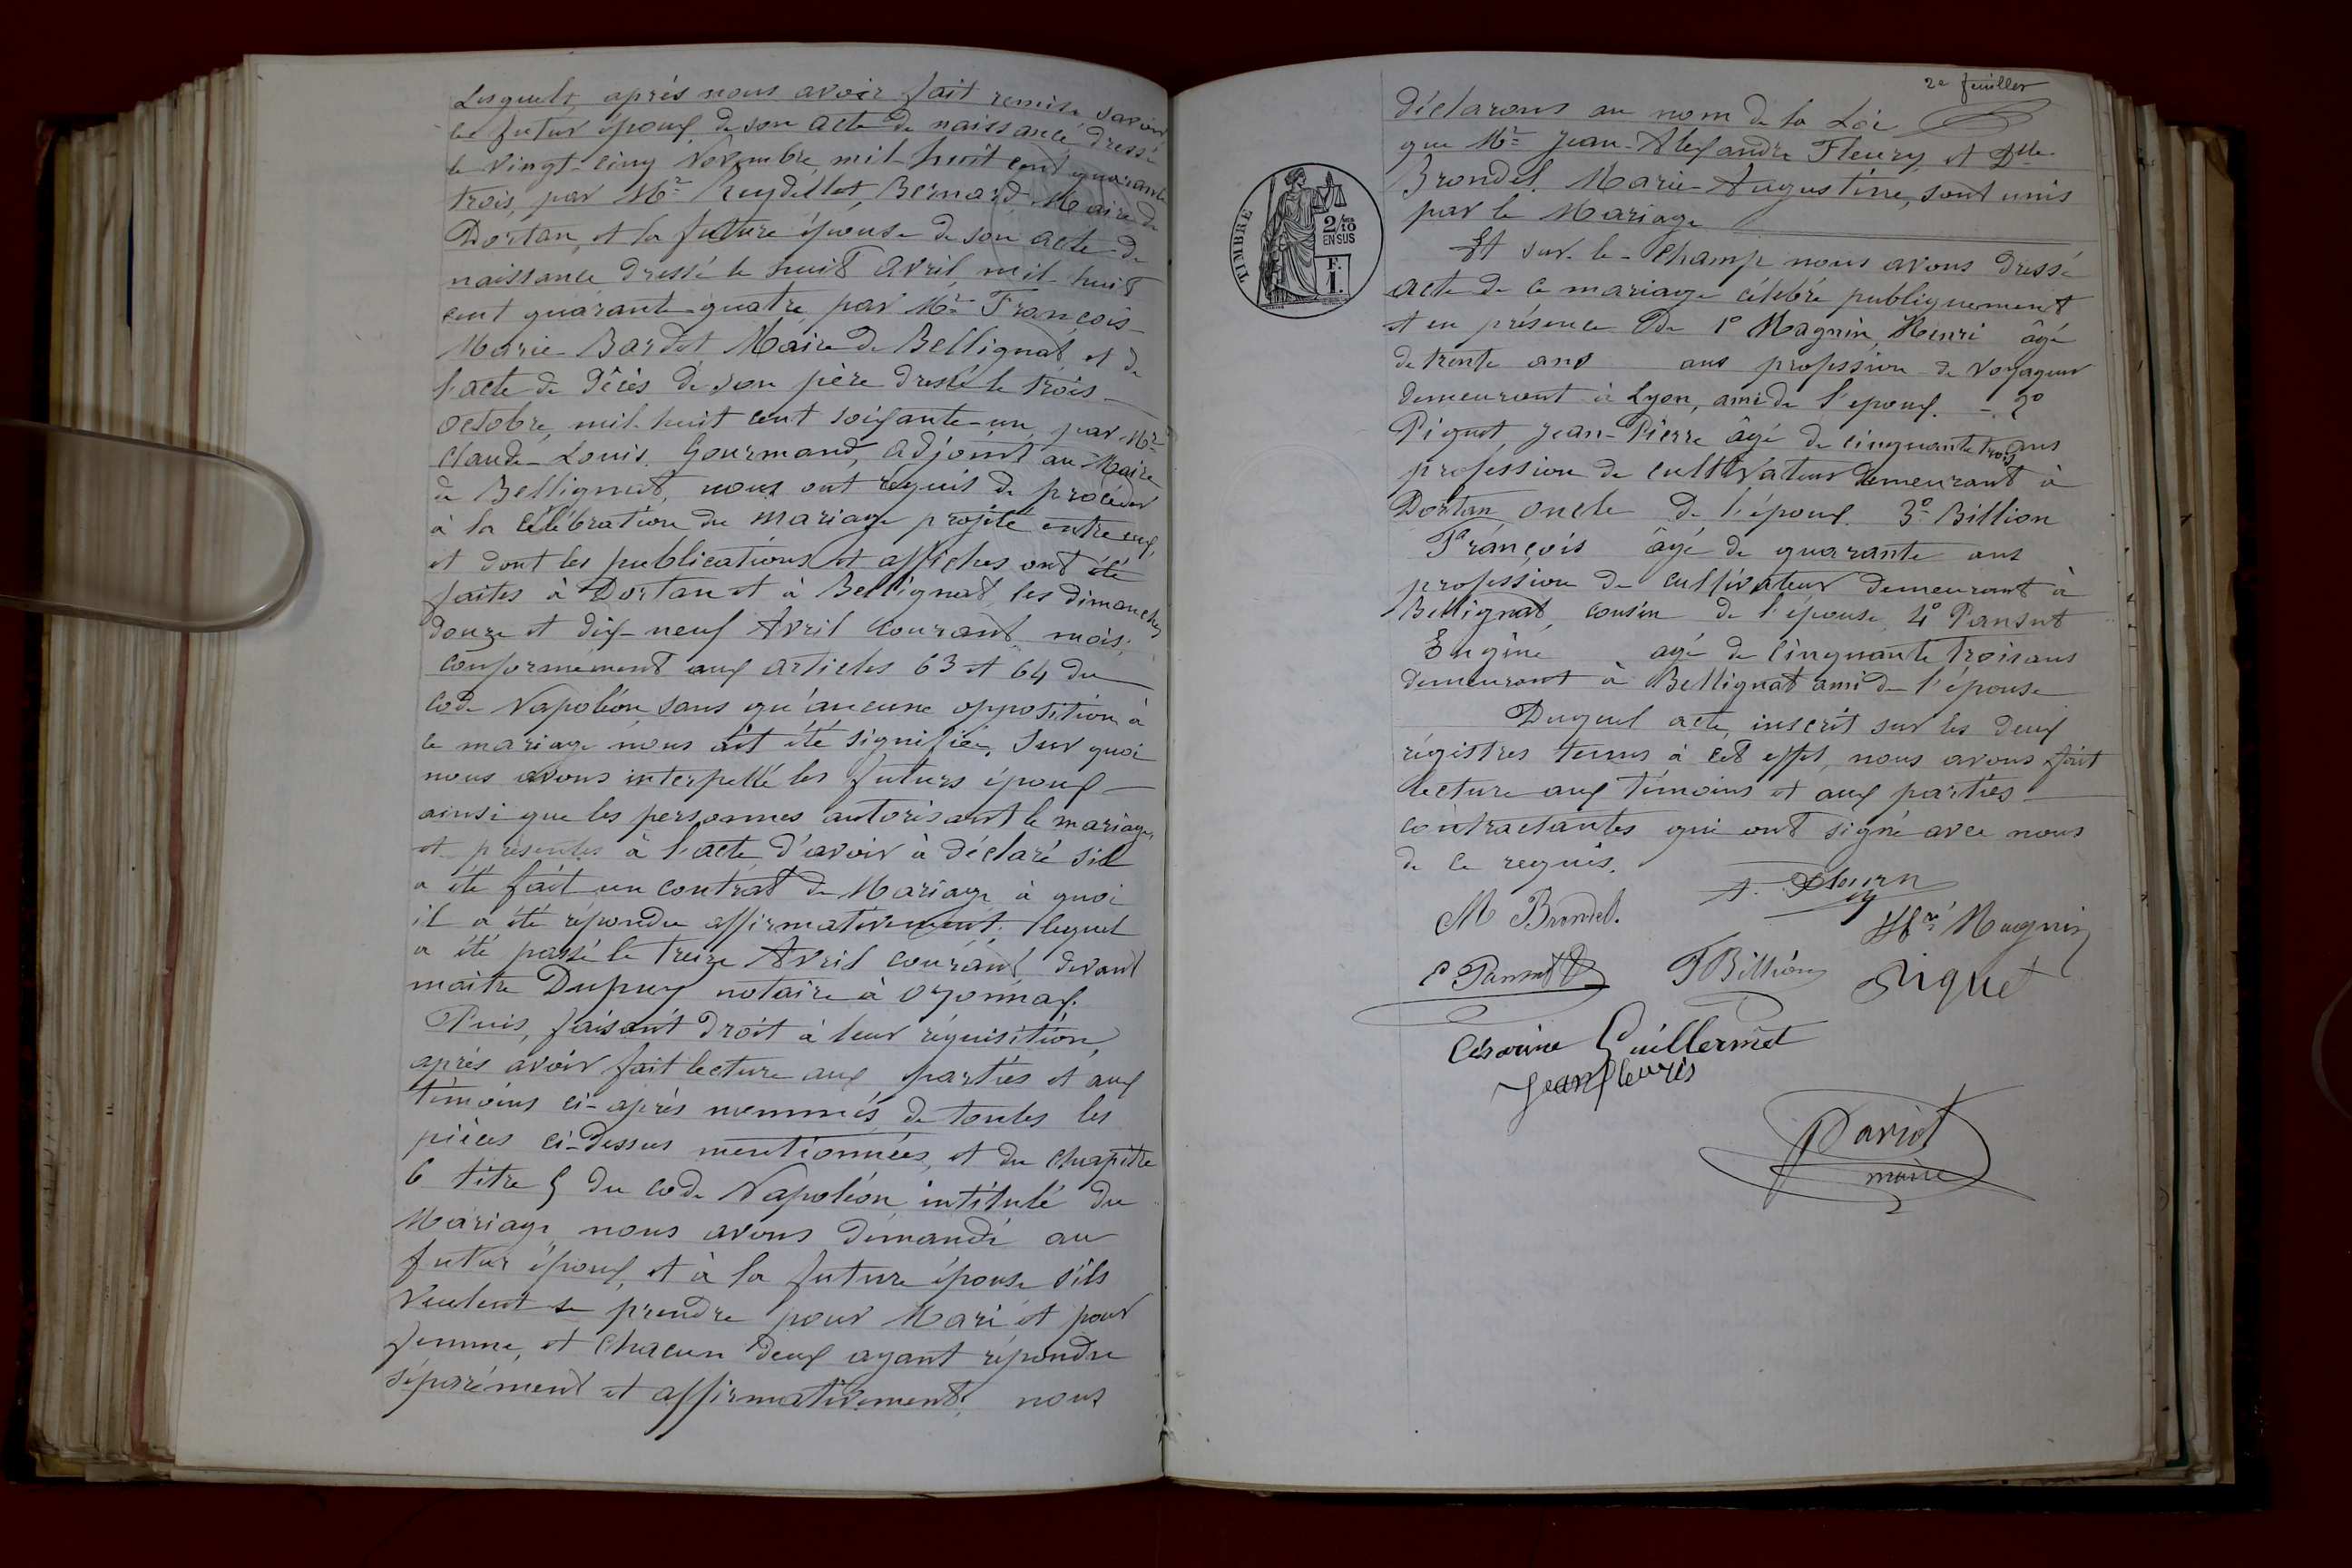 Lesquels, après nous avoir fait remise savoir
le futur époux de son acte de naissance dressé
le vingt-cinq Novembre mil-huit cent quarante
trois, par Mr Bernard Maire de
Dortan, et la future épouse de son acte de
naissance dressé le huit Avril mil-huit
cent quarante-quatre par Mr François-
Marie-Bardet Maire de Bellignat et de
l'acte de décès de son père dressé le trois
Octobre, mil-huit cent soixante-un par Mr
Claude-Louis Gourmand, adjoint au Maire
de Bellignat, nous ont réquis de procéder
à la célébration du mariage projeté entre eux,
et dont les publications et affiches ont été
faites à Dortan et à Bellignat les dimanches
douze et dix-neuf Avril courant mois,
conformément aux articles 63 et 64 du
Code Napoléon sans qu'aucune opposition à
ce mariage nous ait été signifiée. Sur quoi
nous avons interpellé les futurs époux
ainsi que les personnes autorisant le mariage
et présentes à l'acte d'avoir à déclaré s'il
a été fait un contrat de Mariage à quoi
il a été répondu affirmativement, lequel
a été passé le treize Avril courant devant
maître Dupuy notaire à Oyonnax.
Puis, faisant droit à leur réquisition,
après avoir fait lecture aux parties et aux
témoins ci-après nommés de toutes les
pièces ci-dessus mentionnées, et du chapitre
6 titre 5 du code Napoléon intitulé du
Mariage, nous avons demandé au
futur époux, et à la future épouse s'ils
veulent se prendre pour Mari et pour
femme, et chacun deux ayant répondu
séparément et affirmativement, nous
2e feuillet
déclarons au nom de la Loi
que Mr Jean-Alexandre Fleury et Dlle
Brondel Marie-Augustine, sont unis
par le Mariage
TIMBRE
2/10
EN SUS
F.
1.
Et sur-le-champ nous avons dressé
acte de ce mariage célébré publiquement
et en présence de 1° Magnin Henri âgé
de trente ans ans profession de voyageur
demeurant à Lyon, ami de l'époux. - 2°
Piquet, Jean-Pierre âgé de cinquante trois ans
profession de cultivateur demeurant à
Dortan oncle de l'époux 3° Billion
François âgé de quarante ans
profession de cultivateur demeurant à
Bellignat, cousin de l'épouse 4° Pansut
Eugène agé de cinquante trois ans
demeurant à Bellignat ami de l'épouse
Duquel acte, inscrit sur les deux
régistres tenus à cet effet, nous avons fait
lecture aux témoins et aux parties
contractantes qui ont signé avec nous
de ce requis.
M Brondel. A. Fleury
Hri Magnin
E Pansut F Billion Piquet
Césarine Guillermet
Jean fleuris
Daviot
maire